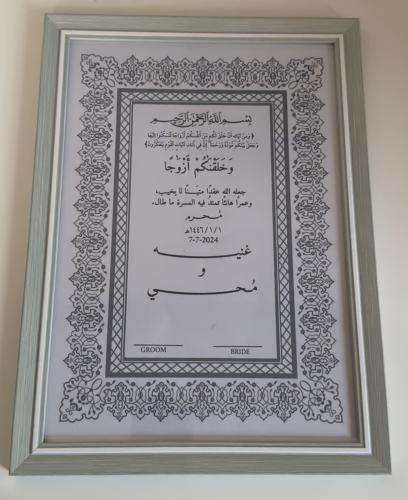 بسم الله الرحمن الرحيم
﴿ وَمِنْ آيَاتِهِ أَنْ خَلَقَ لَكُم مِّنْ أَنْفُسِكُمْ أَزْوَاجًا لِّتَسْكُنُوا إِلَيْهَا
وَجَعَلَ بَيْنَكُم مَّوَدَّةً وَرَحْمَةً إِنَّ فِي ذَلِكَ لَآيَاتٍ لِّقَوْمٍ يَتَفَكَّرُونَ ﴾
وَخَلَقْنَٰكُمْ أَزْوَٰجًا
جعله الله عقدًا متينًا لا يخيب،
وعمرًا هانئًا تمتد فيه المسرة ما طال.
مُحرم
١/١/١٤٤٦هـ
7-7-2024
غنيه
و
مُحي
GROOM BRIDE